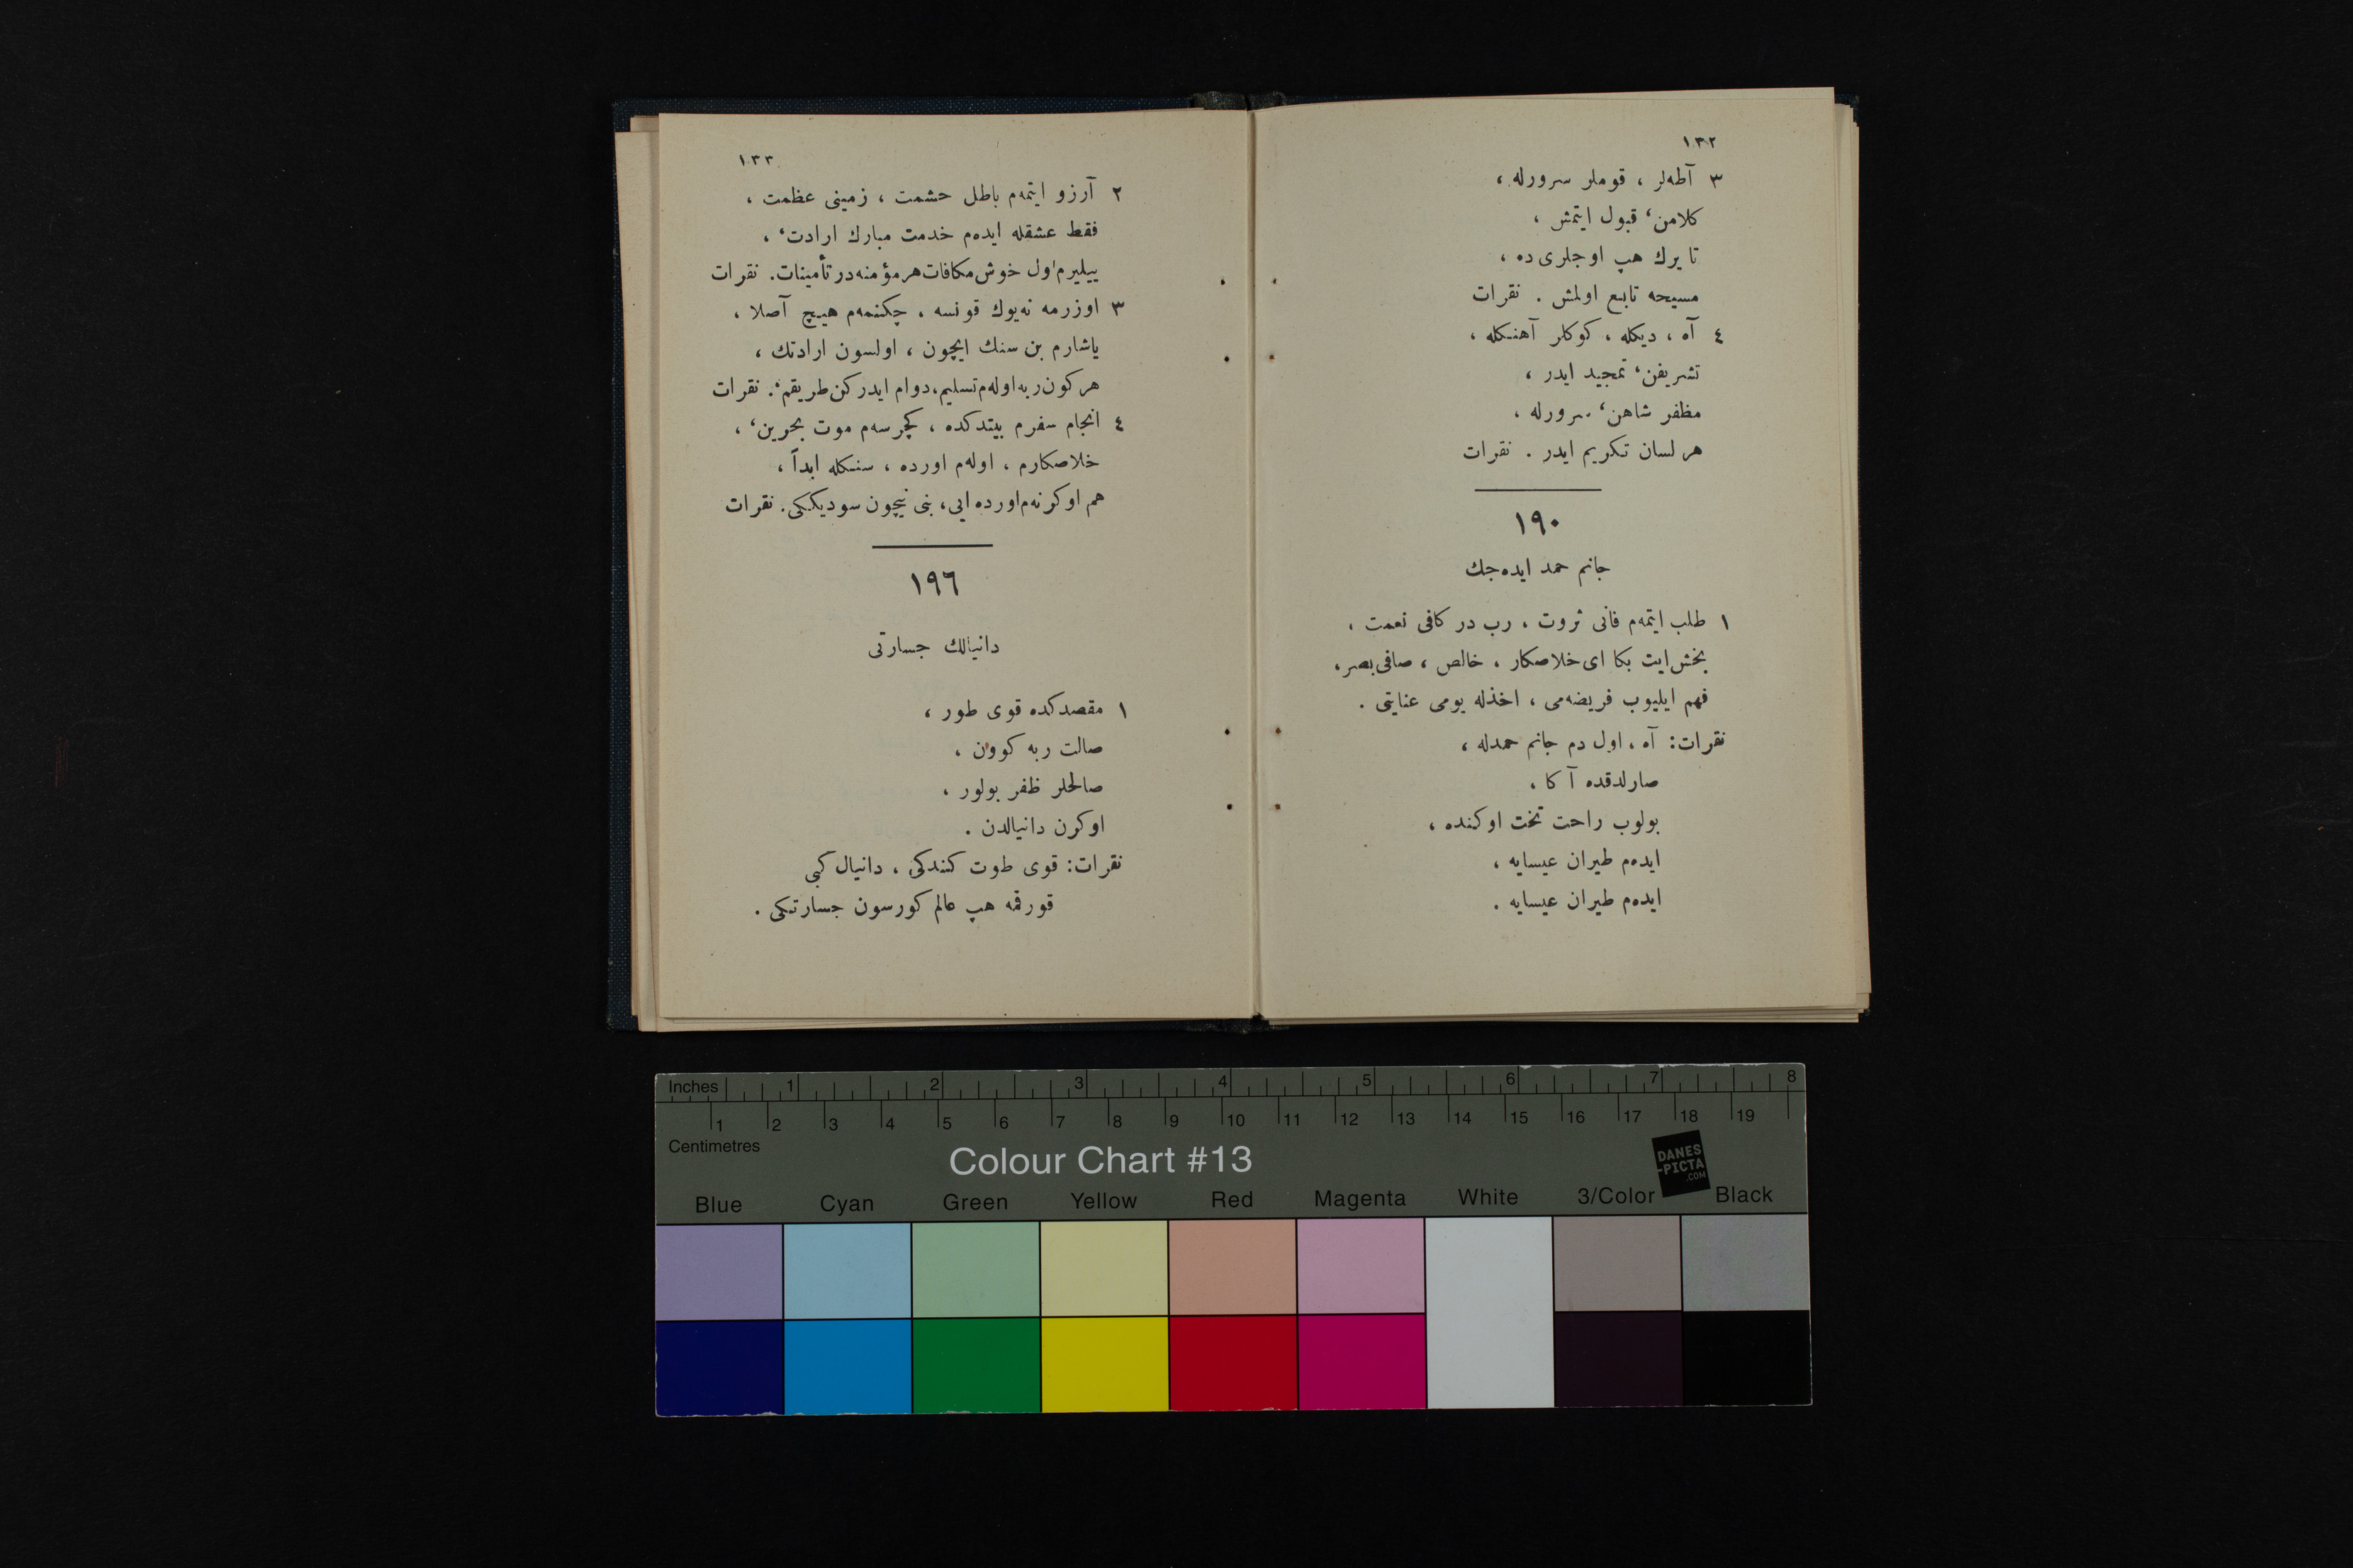 ١٣٢
٣ آطه‌لر ، قوملر سرورله ،
كلامن‘ قبول ايتمش ،
تا يرك هپ اوجلرى ده ،
مسيحه تابع اولمش . نقرات
٤ آه ، ديكله ، كوكلر آهنكله ،
تشريفن‘ تمجيد ايدر ،
مظفر شاهن‘ سرورله ،
هر لسان تكريم ايدر . نقرات
١٩٠
جانم حمد ايده‌جك
١ طلب ايتمه‌م فانى ثروت ، رب در كافى نعمت ،
بخش ايت بكا اى خلاصكار ، خالص ، صافى بصر ،
فهم ايليوب فريضه‌مى ، اخذله يومى عنايتى .
نقرات : آه ، اول دم جانم حمدله ،
صارلدقده آ كا ،
بولوب راحت تخت اوكنده ،
ايده‌م طيران عيسايه ،
ايده‌م طيران عيسايه .
١٣٣
٢ آرزو ايتمه‌م باطل حشمت ، زمينى عظمت ،
فقط عشقله ايده‌م خدمت مبارك ارادت‘ ،
بيليرم اول خوش مكافات هر مؤمنه در تأمينات . نقرات
٣ اوزرمه نه يوك قونسه ، چكنمه‌م هيچ آصلا ،
ياشارم بن سنك ايچون ، اولسون ارادتك ،
هر كون ربه اوله‌م تسليم ، دوام ايدركن طريقم‘ . نقرات
٤ انجام سفرم بيتدكده ، كچرسه‌م موت بحرين‘ ،
خلاصكارم ، اوله‌م اورده ، سنكله ابداً ،
هم اوكرنه‌م اورده ايى ، بنى نيچون سوديككى . نقرات
١٩٦
دانيالك جسارتى
١ مقصدكده قوى طور ،
صالت ربه كوون ،
صالحلر ظفر بولور ،
اوكرن دانيالدن .
نقرات : قوى طوت كندكى ، دانيال كبى
قورقمه هپ عالم كورسون جسارتكى .
Inches 1 2 3 4 5 6 7 8
1 2 3 4 5 6 7 8 9 10 11 12 13 14 15 16 17 18 19
Centimetres
Colour Chart #13
DANES
-PICTA
.COM
Blue Cyan Green Yellow Red Magenta White 3/Color Black